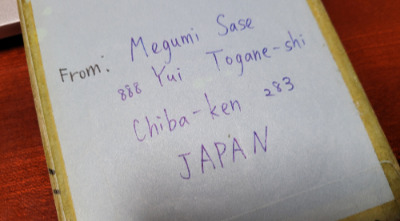 From: Megumi Sase
888 Yui Togane-shi
Chiba-ken 283
JAPAN